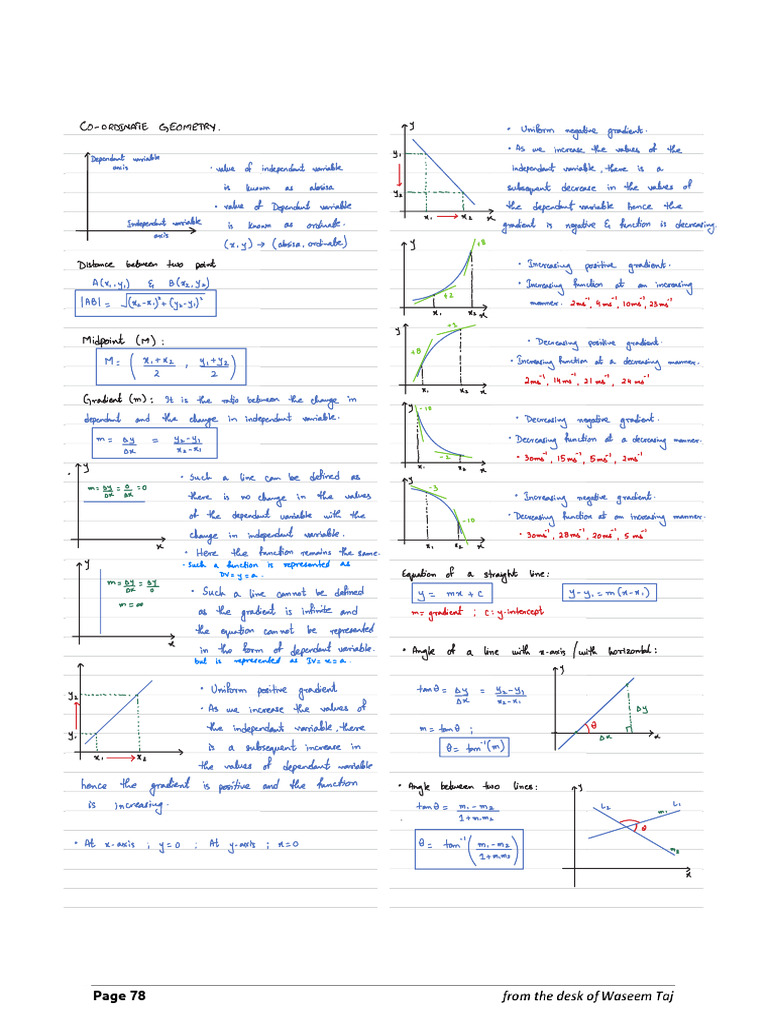 CO-ORDINATE GEOMETRY.
Dependant variable
axis
Independant variable
axis
• value of independant variable
is known as absisa
• value of Dependant variable
is known as ordinate.
(x,y) → (absisa, ordinate)
Distance between two point
A(x₁,y₁) & B(x₂,y₂)
|AB| = √(x₂-x₁)²+(y₂-y₁)²
Midpoint (M) :
M = ( x₁+x₂/2 , y₁+y₂/2 )
Gradient (m) : It is the ratio between the change in
dependant and the change in independant variable.
m = Δy/Δx = y₂-y₁/x₂-x₁
y
m = Δy/Δx = 0/Δx = 0
x
• Such a line can be defined as
there is no change in the values
of the dependant variable with the
change in independant variable.
• Here the function remains the same.
• Such a function is represented as
DV = y = a.
y
m = Δy/Δx = Δy/0
m = ∞
x
• Such a line cannot be defined
as the gradient is infinite and
the equation cannot be represented
in the form of dependant variable.
but is represented as IV = x = a.
y
y₂
y₁
x₁ → x₂
x
• Uniform positive gradient
• As we increase the values of
the independant variable, there
is a subsequent increase in
the values of dependant variable
hence the gradient is positive and the function
is increasing.
• At x-axis ; y=0 ; At y-axis ; x=0
y
y₁
y₂
x₁ → x₂ x
• Uniform negative gradient.
• As we increase the values of the
independant variable, there is a
subsequent decrease in the values of
the dependant variable hence the
gradient is negative & function is decreasing.
y
+8
+2
x₁ x₂ x
• Increasing positive gradient.
• Increasing function at an increasing
manner. 2ms⁻¹, 4ms⁻¹, 10ms⁻¹, 23ms⁻¹
y
+2
+8
x₁ x₂ x
• Decreasing positive gradient.
• Increasing function at a decreasing manner.
2ms⁻¹, 14ms⁻¹, 21ms⁻¹, 24ms⁻¹
y
-10
-2
x₁ x₂ x
• Decreasing negative gradient.
• Decreasing function at a decreasing manner.
• 30ms⁻¹, 15ms⁻¹, 5ms⁻¹, 2ms⁻¹
y
-3
-10
x₁ x₂ x
• Increasing negative gradient.
• Decreasing function at an increasing manner.
• 30ms⁻¹, 28ms⁻¹, 20ms⁻¹, 5ms⁻¹
Equation of a straight line:
y = mx + c
y-y₁ = m(x-x₁)
m = gradient ; c = y-intercept
• Angle of a line with x-axis / with horizontal:
tanθ = Δy/Δx = y₂-y₁/x₂-x₁
m = tanθ ;
θ = tan⁻¹(m)
y
θ
Δy
Δx
x
• Angle between two lines:
tanθ = m₁-m₂/1+m₁m₂
θ = tan⁻¹( m₁-m₂/1+m₁m₂ )
y
L₂
m₁
L₁
θ
m₂
x
Page 78
from the desk of Waseem Taj